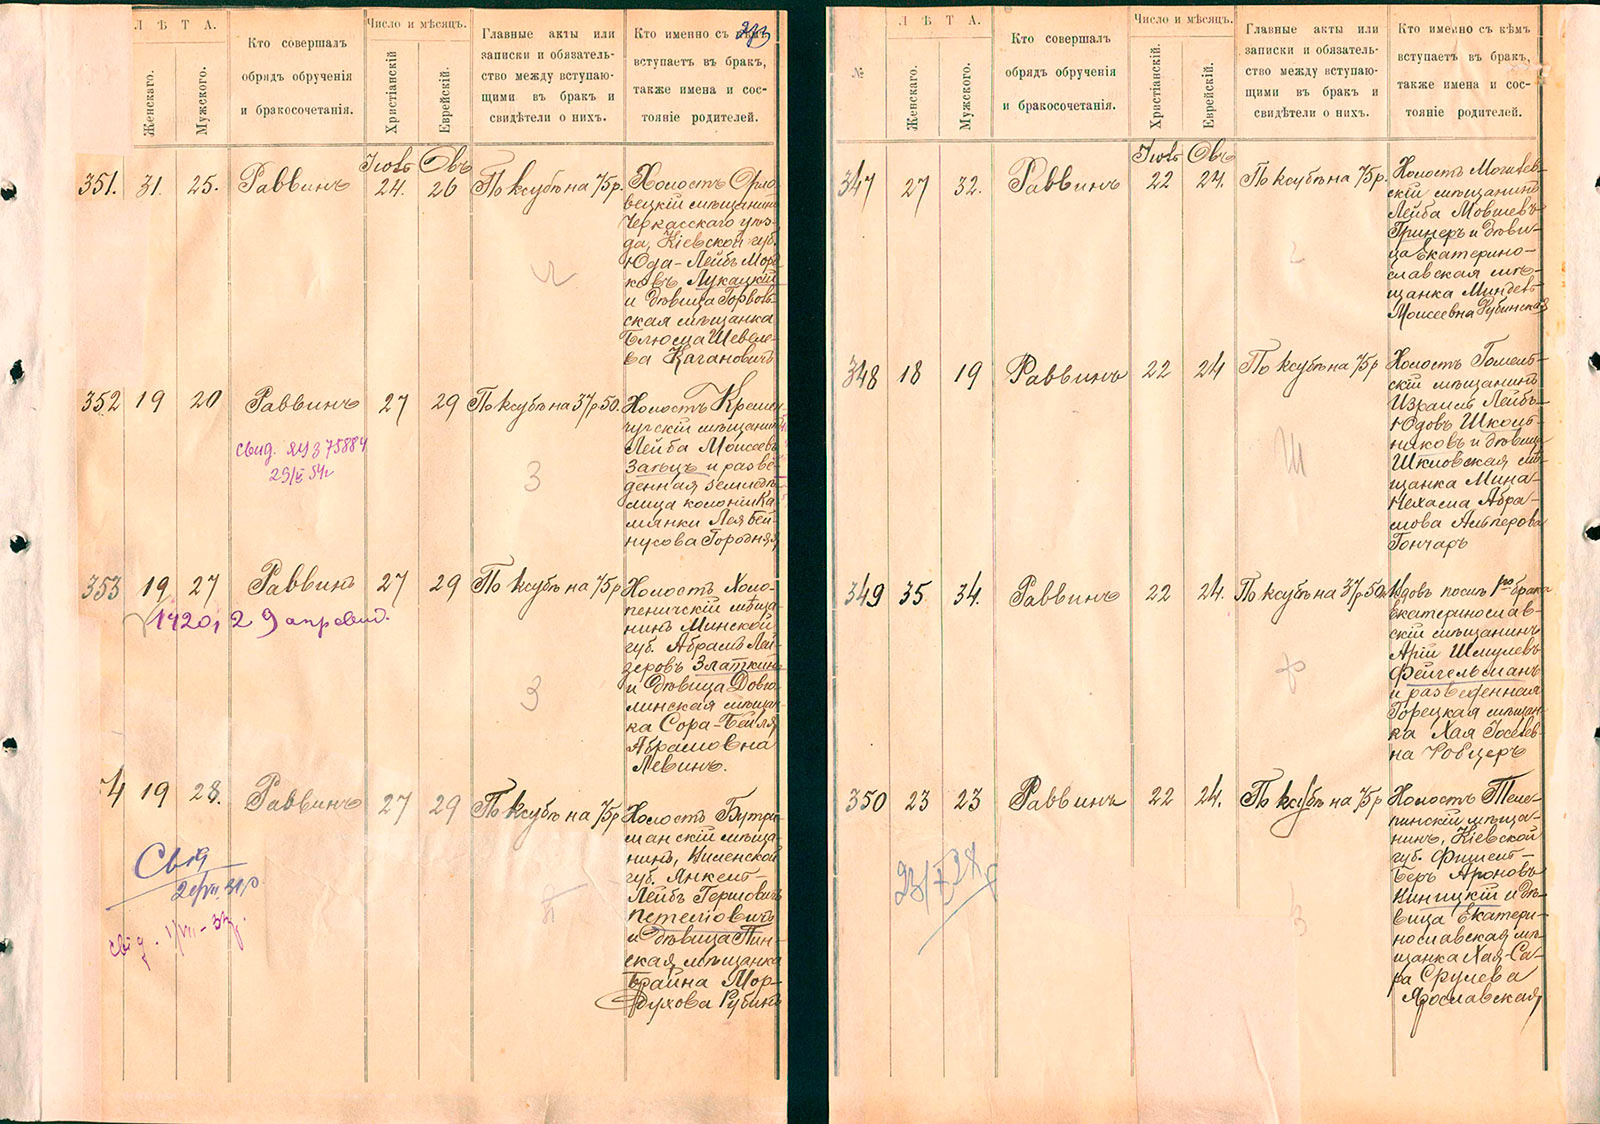 Л Ѣ Т А.
Женскаго.
Мужского.
Кто совершалъ
обрядъ обрученія
и бракосочетанія.
Число и мѣсяцъ.
Христіанскій
Еврейскій.
Главные акты или
записки и обязатель-
ство между вступаю-
щими въ бракъ и
свидѣтели о нихъ.
Кто именно съ кѣмъ
вступаетъ въ бракъ,
также имена и сос-
тояніе родителей.
351. 31. 25. Раввинъ 24. 26 По ксубѣ на 75 р.
Холостъ
вецкій мѣщанинъ
Черкасскаго уѣз-
да, Кіевской губ.
Юда-Лейбъ Морд
ковъ Лукацкій
и дѣвица Горволь-
ская мѣщанка
Блюма Шевеле-
ва Кагановичъ
352 19 20 Раввинъ 27 29 По ксубѣ на 37 р 50.
Холостъ Кремен-
чугскій мѣщанинъ
Лейба Моисеевъ
Заецъ и разве-
денная земледѣ-
лица колоніи Ка
мянки Лея Бей-
нусова Городняя
свид. ЯУ 375884
353 19 27 Раввинъ 27 29 По ксубѣ на 75 р
Холостъ Холо-
пеничскій мѣща
нинъ Минской
губ. Абрамъ Лей-
зеровъ Златкинъ
и дѣвица Довго-
линская мѣщан-
ка Сора-Бейля
Абрамовна
Левинъ.
З
З
4 19 28. Раввинъ 27 29 По ксубѣ на 75 р
Холостъ Бутри-
манскій мѣща-
нинъ, Виленской
губ. Янкель-
Лейбъ Гершовичъ
Петеліовичъ
и дѣвица Пин-
ская мѣщанка
Брайна Мор-
духова Рубинъ
Свид
свид.
№
Л Ѣ Т А.
Женскаго.
Мужского.
Кто совершалъ
обрядъ обрученія
и бракосочетанія.
Число и мѣсяцъ.
Христіанскій
Еврейскій.
Главные акты или
записки и обязатель-
ство между вступаю-
щими въ бракъ и
свидѣтели о нихъ.
Кто именно съ кѣмъ
вступаетъ въ бракъ,
также имена и сос-
тояніе родителей.
347 27 32. Раввинъ 22 24. По ксубѣ на 75 р.
Холостъ Могилев-
скій мѣщанинъ
Лейба Мовшевъ
Гринеръ и дѣви-
ца Екатерино-
славская мѣ-
щанка Миндель
Моисеевна Рубинская
348 18 19 Раввинъ 22 24 По ксубѣ на 75 р
Холостъ Гомель-
скій мѣщанинъ
Израиль Лейбъ-
Юдовъ Школь-
никовъ и дѣвица
Шкловская мѣ-
щанка Мина-
Нехама Абра-
мова Альперова
Гончаръ
Ш
349 35 34. Раввинъ 22 24. По ксубѣ на 37 р 50к
Вдовъ послѣ 1го брака
екатеринослав-
скій мѣщанинъ
Арій Шмулевъ
Фейгельманъ
и разведенная
Горецкая мѣщан-
ка Хая Іоселев-
на Робцеръ
Ф
350 23 23 Раввинъ 22 24. По ксубѣ на 75 р
Холостъ Теле-
пинскій мѣща-
нинъ, Кіевской
губ. Фишель-
Беръ Ароновъ
Виницкій и дѣ-
вица Екатери-
нославская мѣ-
щанка Хая-Са-
ра Срулева
Ярославская